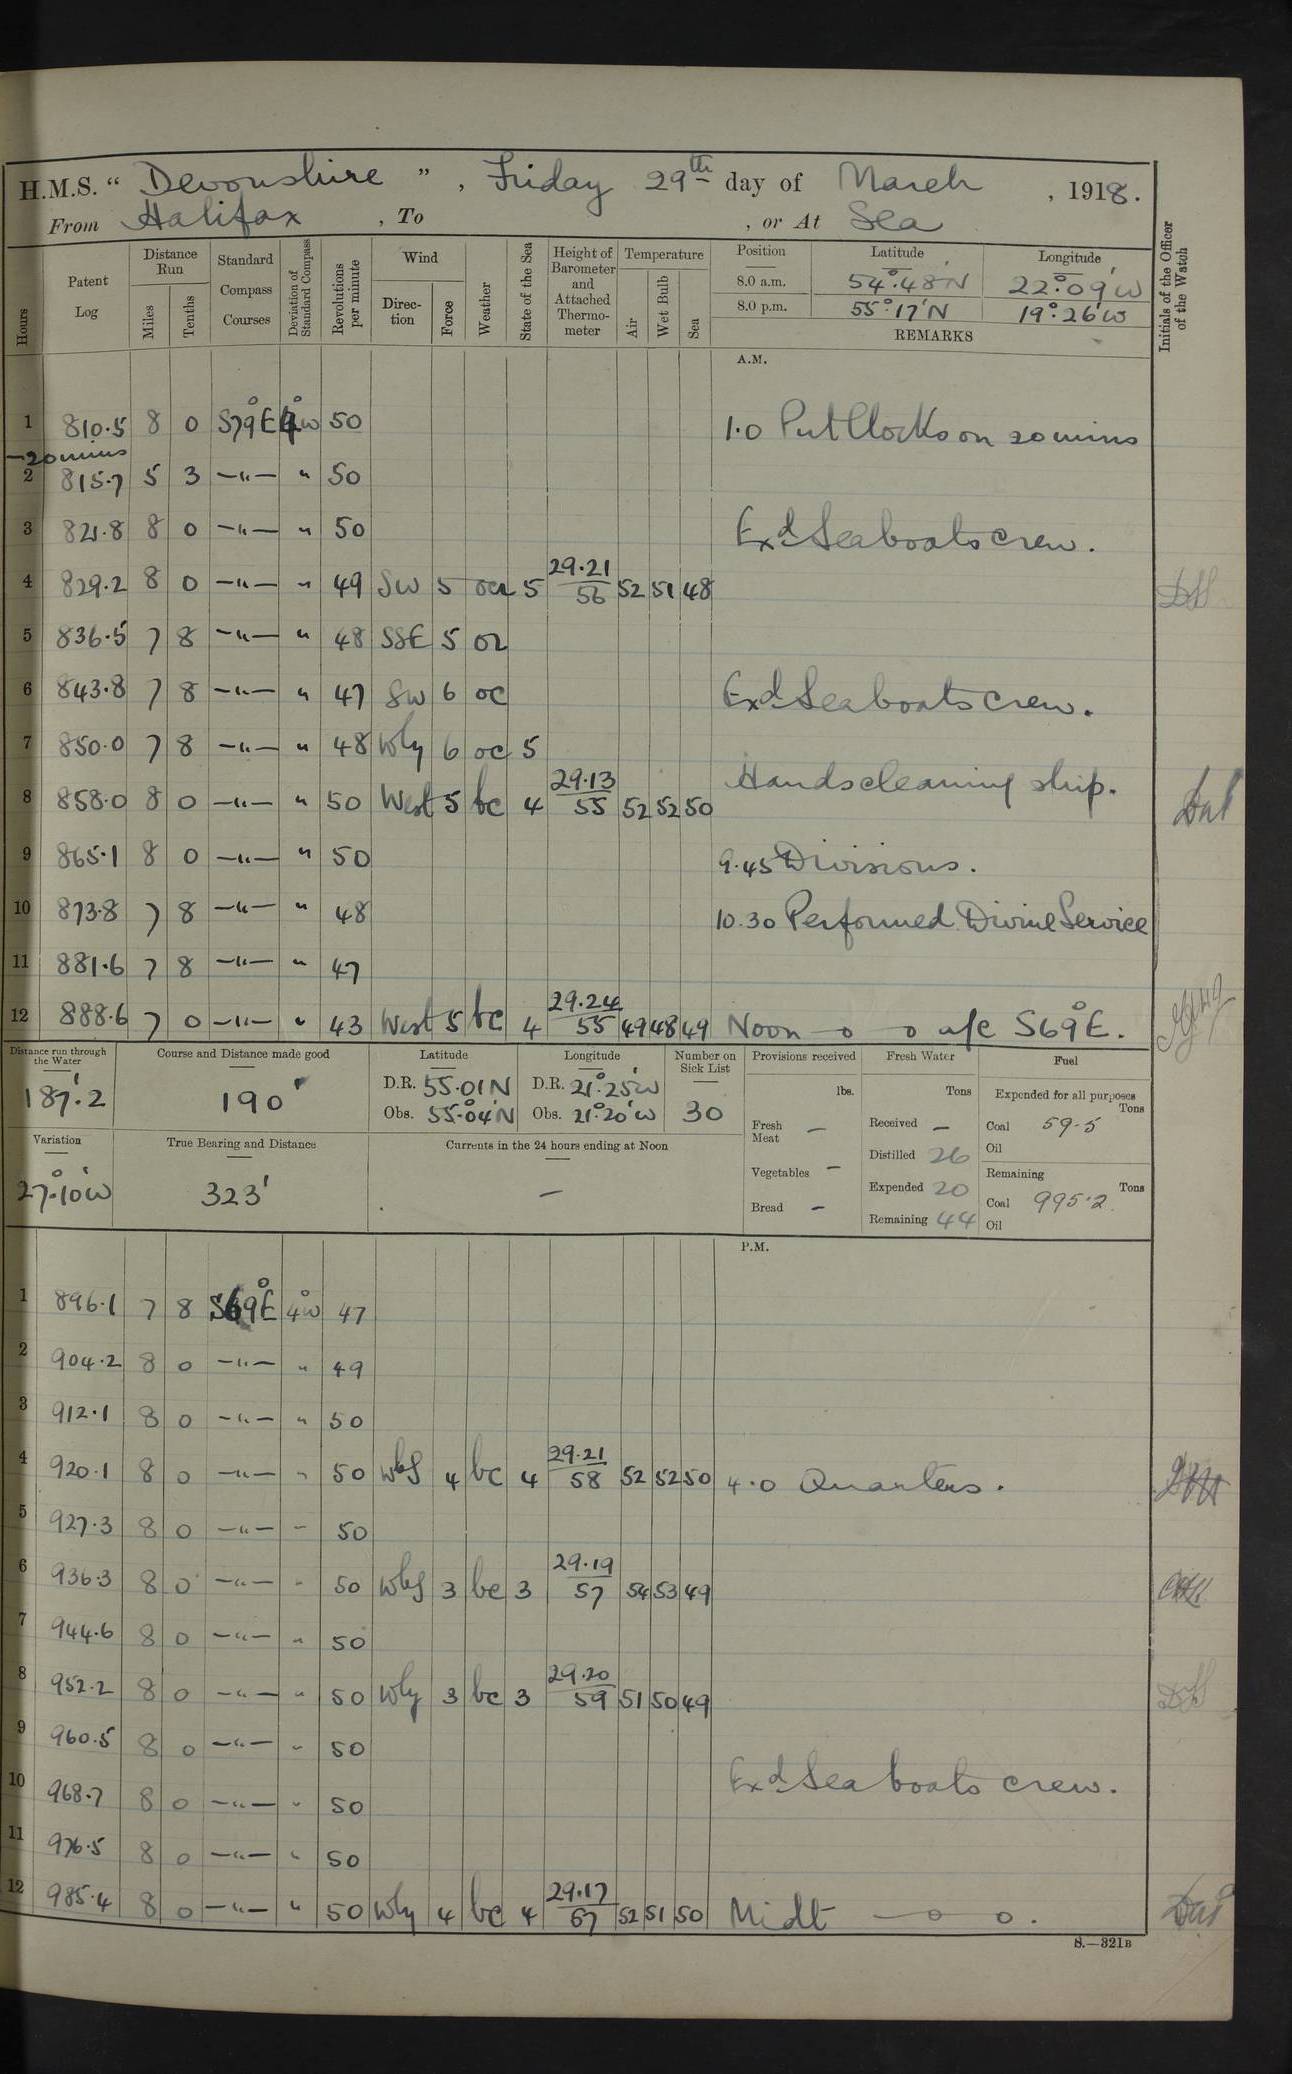 H.M.S. “ Devonshire ” , Friday 29th day of March , 1918.
From Halifax , To , or At Sea
Hours
Patent Log
Distance Run
Miles
Tenths
Standard Compass Courses
Deviation of Standard Compass
Revolutions per minute
Wind
Direc-tion
Force
Weather
State of the Sea
Height of Barometer and Attached Thermo-meter
Temperature
Air
Wet Bulb
Sea
Position Latitude Longitude
8.0 a.m. 54°.48'N 22°.09'W
8.0 p.m. 55°.17'N 19°.26'W
REMARKS
Initials of the Officer of the Watch
A.M.
1 810.5 8 0 S79°E 4°W 50 1.0 Put Clocks on 20 mins
-20 mins
2 815.7 5 3 —"— " 50
3 821.8 8 0 —"— " 50 Exd Seaboats crew.
4 829.2 8 0 —"— " 49 SW 5 5 29.21 56 52 51 48
5 836.5 7 8 —"— " 48 SSE 5 or
6 843.8 7 8 —"— " 47 SW 6 oc Exd Seaboats crew.
7 850.0 7 8 —"— " 48 Wly 6 oc 5
8 858.0 8 0 —"— " 50 West 5 bc 4 29.13 55 52 52 50 Hands cleaning ship.
9 865.1 8 0 —"— " 50 9.45 Divisions.
10 873.8 7 8 —"— " 48 10.30 Performed Divine Service
11 881.6 7 8 —"— " 47
12 888.6 7 0 —"— " 43 West 5 bc 4 29.24 55 49 48 49 Noon —o o a/c S69°E.
Distance run through the Water
187'.2
Course and Distance made good
190'
Latitude
D.R. 55.01N
Obs. 55°.04'N
Longitude
D.R. 21°.25'W
Obs. 21°20'W
Number on Sick List
30
Variation
27°.10'W
True Bearing and Distance
323'
Currents in the 24 hours ending at Noon
—
Provisions received
lbs.
Fresh Meat —
Vegetables —
Bread —
Fresh Water
Tons
Received —
Distilled 26
Expended 20
Remaining 44
Fuel
Expended for all purposes
Tons
Coal 59.5
Oil
Remaining
Tons
Coal 995.2
Oil
P.M.
1 896.1 7 8 S69°E 4°W 47
2 904.2 8 0 —"— " 49
3 912.1 8 0 —"— " 50
4 920.1 8 0 —"— " 50 WbS 4 bc 4 29.21 58 52 52 50 4.0 Quarters.
5 927.3 8 0 —"— " 50
6 936.3 8 0 —"— " 50 WbS 3 bc 3 29.19 57 54 53 49
7 944.6 8 0 —"— " 50
8 952.2 8 0 —"— " 50 Wly 3 bc 3 29.20 59 51 50 49
9 960.5 8 0 —"— " 50
10 968.7 8 0 —"— " 50 Exd Sea boats crew.
11 976.5 8 0 —"— " 50
12 985.4 8 0 —"— " 50 Wly 4 bc 4 29.17 57 52 51 50 Midt —o o.
S.—321B